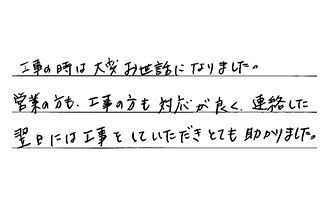 工事の時は大変お世話になりました。
営業の方も、工事の方も対応が良く、連絡した
翌日には工事をしていただきとても助かりました。